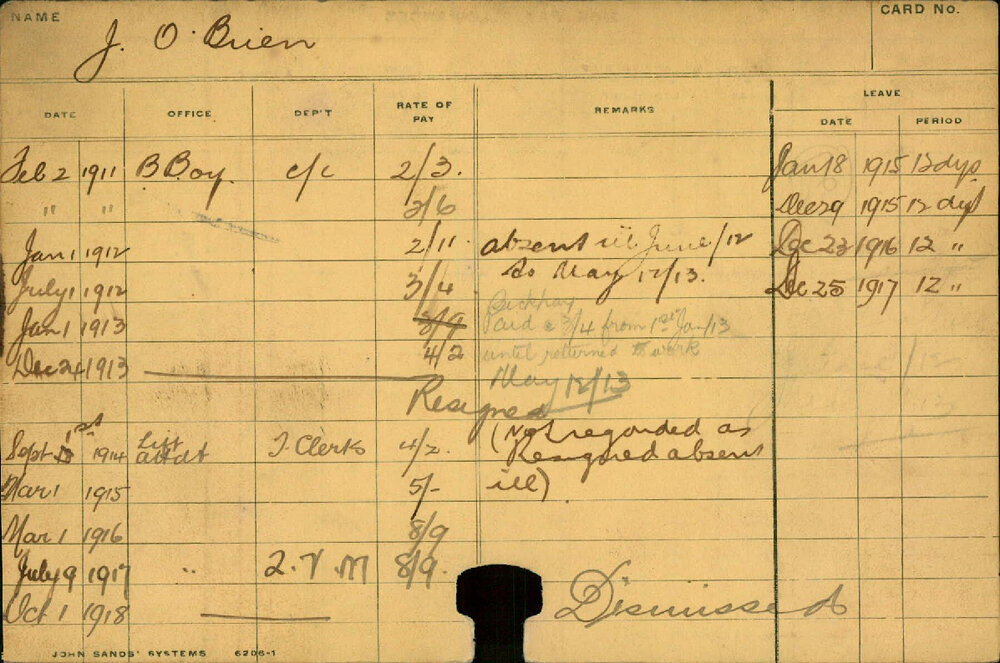 NAME
CARD NO.
J. O'Brien
DATE OFFICE DEP'T RATE OF PAY REMARKS LEAVE
DATE PERIOD
Feb 2 1911 B Boy. c/c 2/3. Jan 18 1915 12 dys
" " 2/6 Dec 29 1915 12 dys
Jan 1 1912 2/11 absent ill June/12 Dec 23 1916 12 "
July 1 1912 3/4 to May 12/13. Dec 25 1917 12 "
Jan 1 1913 3/9 Paid @ 3/4 from 1st Jan/13
Dec 24 1913 4/2 until returned to work
May 12/13
Resigned
Sept 1st 1914 Lift attdt J. Clerks 4/2. (Not regarded as
Resigned absent
Mar 1 1915 5/- ill)
Mar 1 1916 8/9
July 9 1917 " 2. V. M 8/9.
Oct 1 1918 Dismissed
JOHN SANDS' SYSTEMS 6206-1